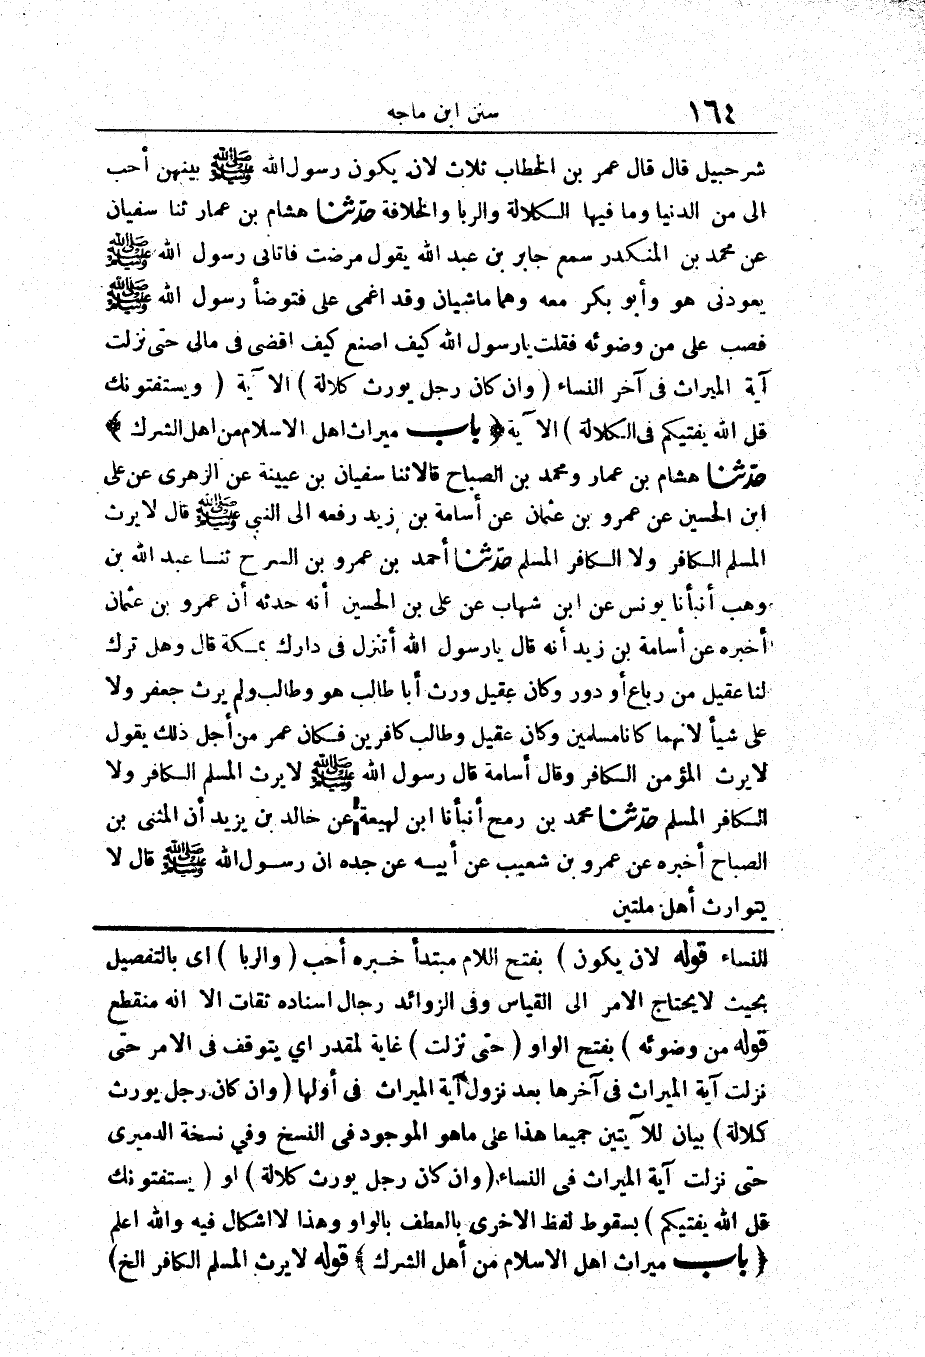 ١٦٤ سنن ابن ماجه
شرحبيل قال قال عمر بن الخطاب ثلاث لان يكون رسول الله ﷺ بينهن أحب
الى من الدنيا وما فيها الكلالة والربا والخلافة حدّثنا هشام بن عمار ثنا سفيان
عن محمد بن المنكدر سمع جابر بن عبد الله يقول مرضت فاتانى رسول الله ﷺ
يعودنى هو وأبو بكر معه وهما ماشيان وقد اغمى على فتوضأ رسول الله ﷺ
فصب على من وضوئه فقلت يارسول الله كيف اصنع كيف اقضى فى مالى حتى نزلت
آية الميراث فى آخر النساء ( وان كان رجل يورث كلالة ) الآية ( ويستفتونك
قل الله يفتيكم فى الكلالة ) الآية ﴿ باب ميراث اهل الاسلام من اهل الشرك ﴾
حدّثنا هشام بن عمار ومحمد بن الصباح قالا ثنا سفيان بن عيينة عن الزهرى عن على
ابن الحسين عن عمرو بن عثمان عن أسامة بن زيد رفعه الى النبى ﷺ قال لا يرث
المسلم الكافر ولا الكافر المسلم حدّثنا أحمد بن عمرو بن السرح ثنا عبد الله بن
وهب أنبأنا يونس عن ابن شهاب عن على بن الحسين أنه حدثه أن عمرو بن عثمان
أخبره عن أسامة بن زيد أنه قال يارسول الله أتنزل فى دارك بمكة قال وهل ترك
لنا عقيل من رباع أو دور وكان عقيل ورث أبا طالب هو وطالب ولم يرث جعفر ولا
على شيأ لانهما كانا مسلمين وكان عقيل وطالب كافرين فكان عمر من أجل ذلك يقول
لا يرث المؤمن الكافر وقال أسامة قال رسول الله ﷺ لا يرث المسلم الكافر ولا
الكافر المسلم حدّثنا محمد بن رمح أنبأنا ابن لهيعة عن خالد بن يزيد أن المثنى بن
الصباح أخبره عن عمرو بن شعيب عن أبيه عن جده ان رسول الله ﷺ قال لا
يتوارث أهل ملتين
للنساء قوله لان يكون ) بفتح اللام مبتدأ خبره أحب ( والربا ) اى بالتفصيل
بحيث لا يحتاج الامر الى القياس وفى الزوائد رجال اسناده ثقات الا انه منقطع
قوله من وضوئه ) بفتح الواو ( حتى نزلت ) غاية لمقدر اي يتوقف فى الامر حتى
نزلت آية الميراث فى آخرها بعد نزول آية الميراث فى أولها ( وان كان رجل يورث
كلالة ) بيان للآيتين جميعا هذا على ماهو الموجود فى النسخ وفي نسخة الدميرى
حتى نزلت آية الميراث فى النساء ( وان كان رجل يورث كلالة ) او ( يستفتونك
قل الله يفتيكم ) بسقوط لفظ الاخرى بالعطف بالواو وهذا لااشكال فيه والله اعلم
﴿ باب ميراث اهل الاسلام من أهل الشرك ﴾ قوله لا يرث المسلم الكافر الخ )